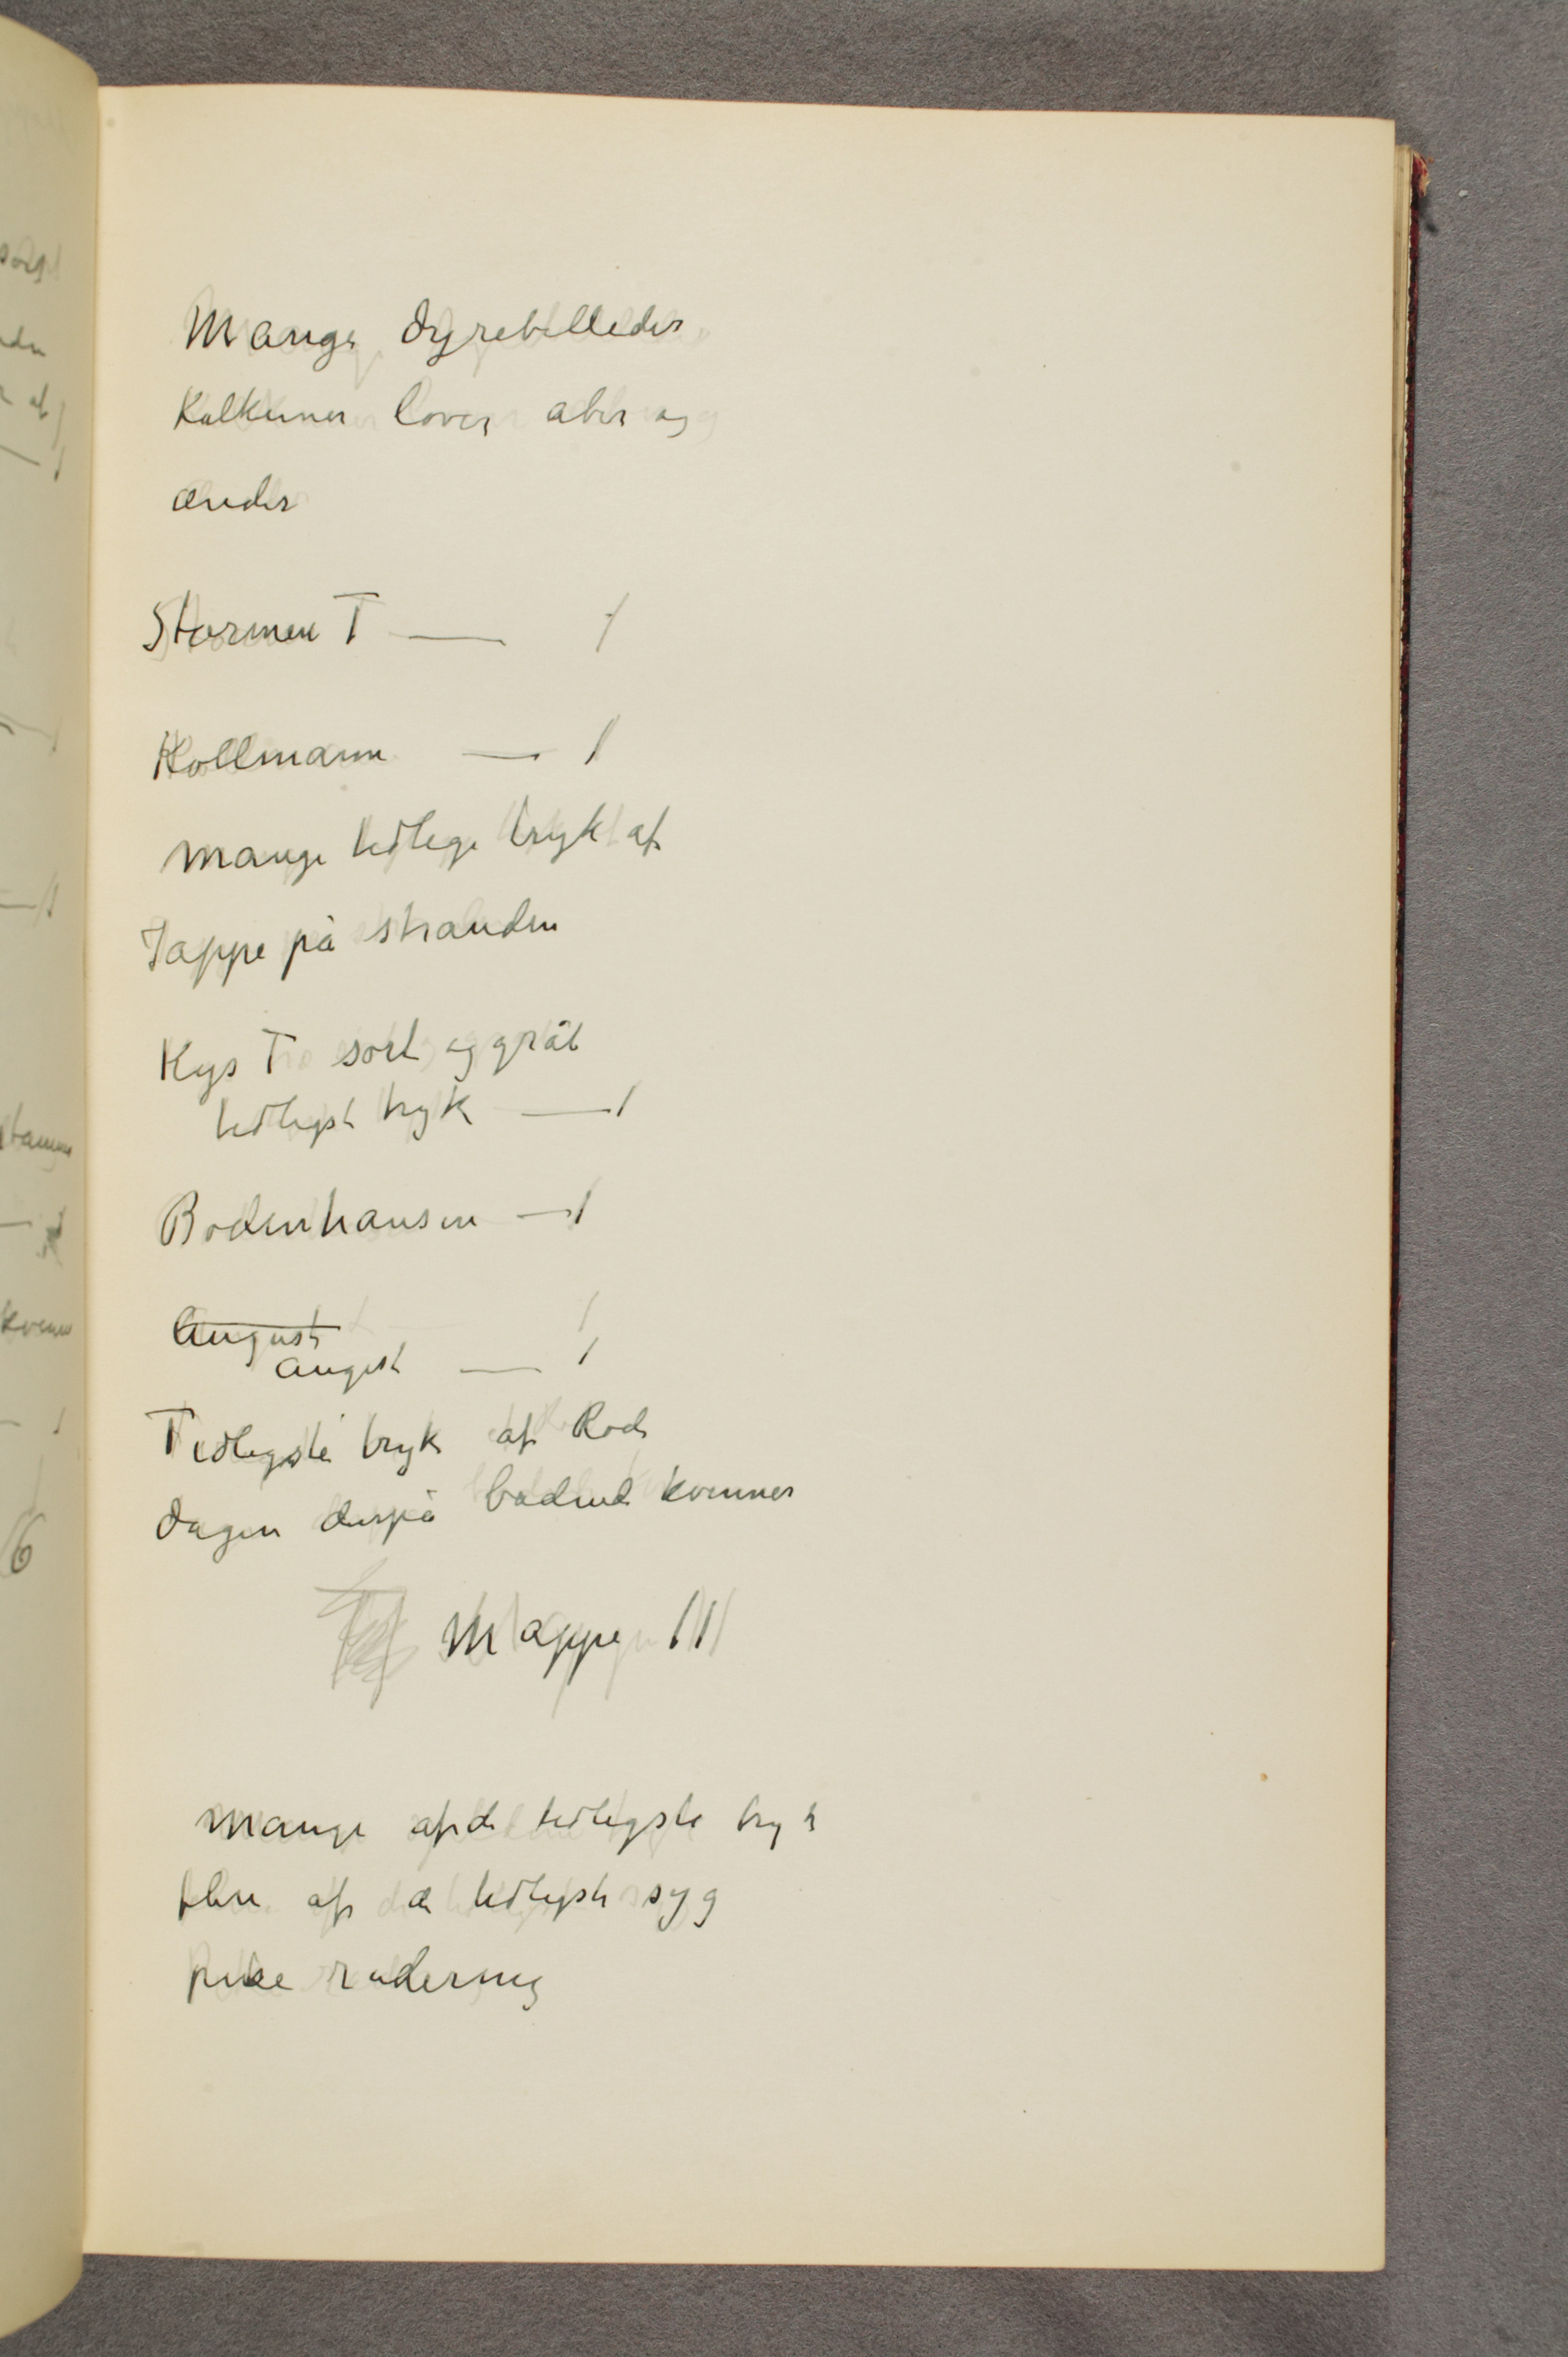 Mange dyrebilleder
Kalkuner løver aber og
ænder
Stormen T — 1
Kollmann — 1
mange tidlige tryk af
Jappe på stranden
Kys T sort og gråt
tidligst tryk — 1
Bodenhausen — 1
August 1
angst — 1
Tidligste tryk af Rod
dagen derpå badend kvinner
Mappe III
mange af de tidligste tryk
flere af de tidligste syg
pike radering